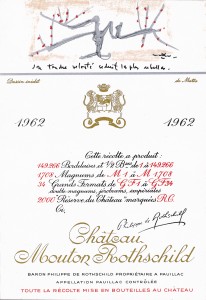 sa tendre volonté séduit la plus rebelle.
Dessin inédit de Matta
1962 1962
Cette récolte a produit :
149.266 Bordelaises et ½ Bses de 1 à 149.266
1708 Magnums de M 1 à M 1708
34 Grands Formats de G F 1 à G F 34
double magnums, jéroboams, impériales
2000 Réserve du Château marquées R.C.
Ci,
Philippe de Rothschild
Château
Mouton Rothschild
BARON PHILIPPE DE ROTHSCHILD PROPRIÉTAIRE A PAUILLAC
APPELLATION PAUILLAC CONTRÔLÉE
TOUTE LA RÉCOLTE MISE EN BOUTEILLES AU CHÂTEAU